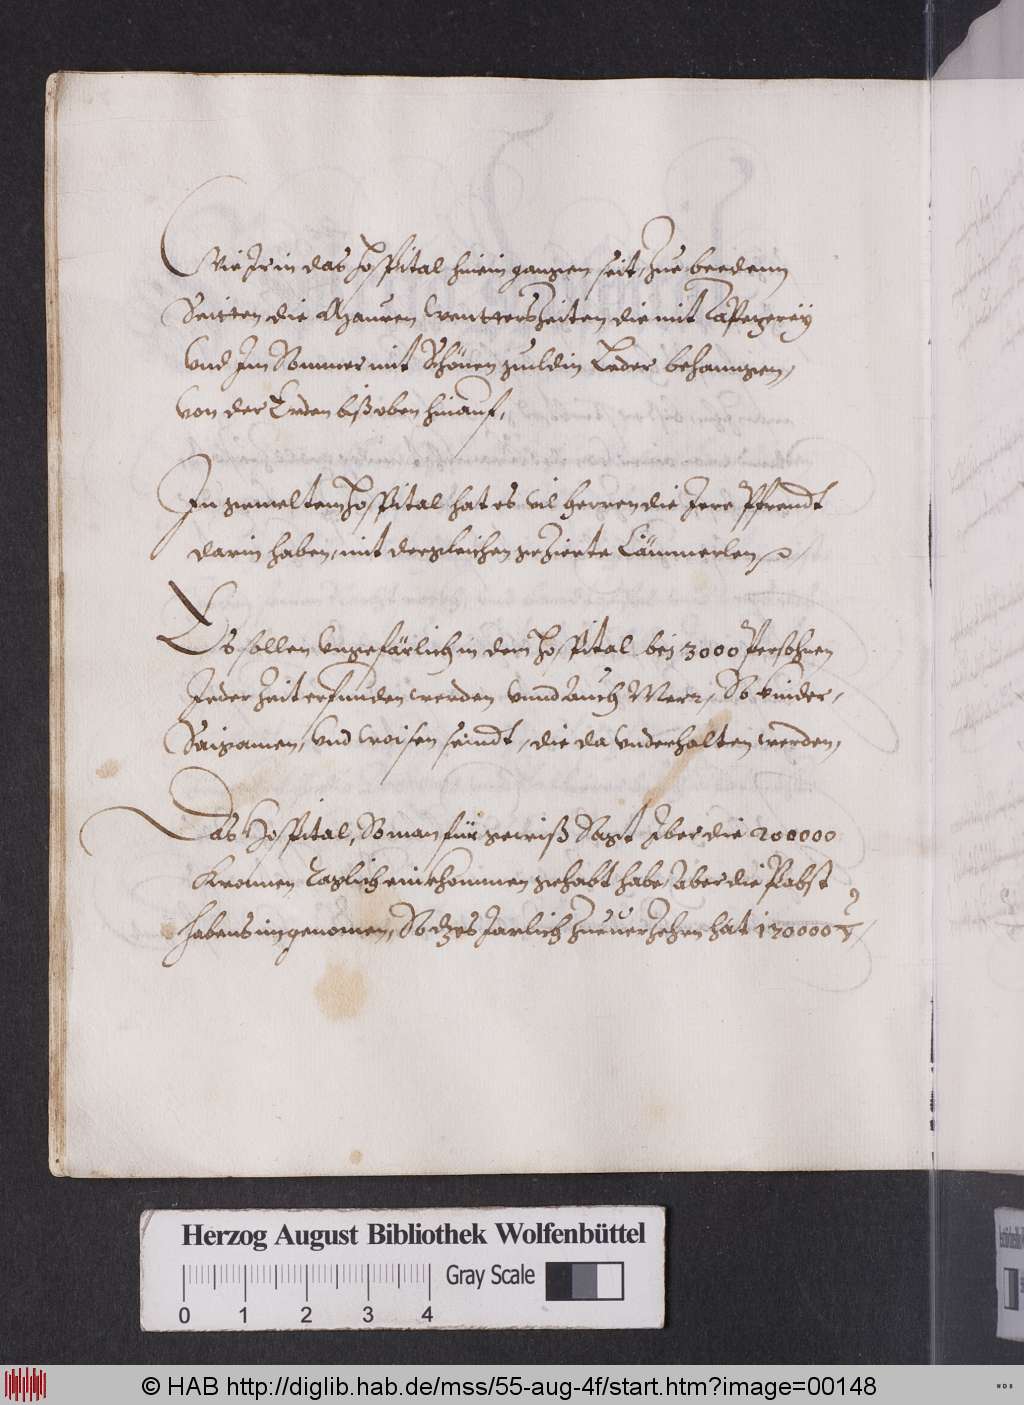 Wie Ir in das Hospital hinein gangen seit, Zue beedenn
Seitten die Mauren Wintterszeiten die mit Tapezereÿ
Vnd Im Sommer mit Schönen guldin Leder behanngen,
von der Erden biß oben hinauf,
In gemeltem Hospital hat es vil herren die Jere Pfrendt
darin haben, mit dergleichen gezierte Cämmerlen
Es sollen vngefärlich in dem Hospital bei 3000 Persohnen
Jeder Zeit erfunden werden vnnd auch Mer, So kinder,
vnd woisen seindt, die da vnderhalten werden,
Das Hospital, So man für gewiß Sagt Iber die 200000
Kronnen Taglich einkhommen gehabt habe, aber die Pabst
habens ingenomen, So dzes Jarlich Zuuerzehrn hat 120000
Herzog August Bibliothek Wolfenbüttel
Gray Scale
0 1 2 3 4
© HAB http://diglib.hab.de/mss/55-aug-4f/start.htm?image=00148